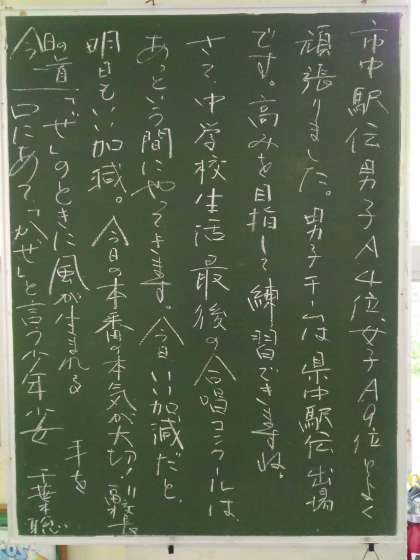 市中駅伝男子A4位、女子A9位とよく
頑張りました。男子チームは県中駅伝出場
です。高みを目指して練習できますね。
さて、中学校生活最後の合唱コンクールは、
あっという間にやってきます。今日いい加減だと
明日もいい加減。今日の本番の本気が大切!
今日の
「ぜ」のときに風が生まれる 手を
口にあて、「かぜ」と言う少年少女 千葉聡